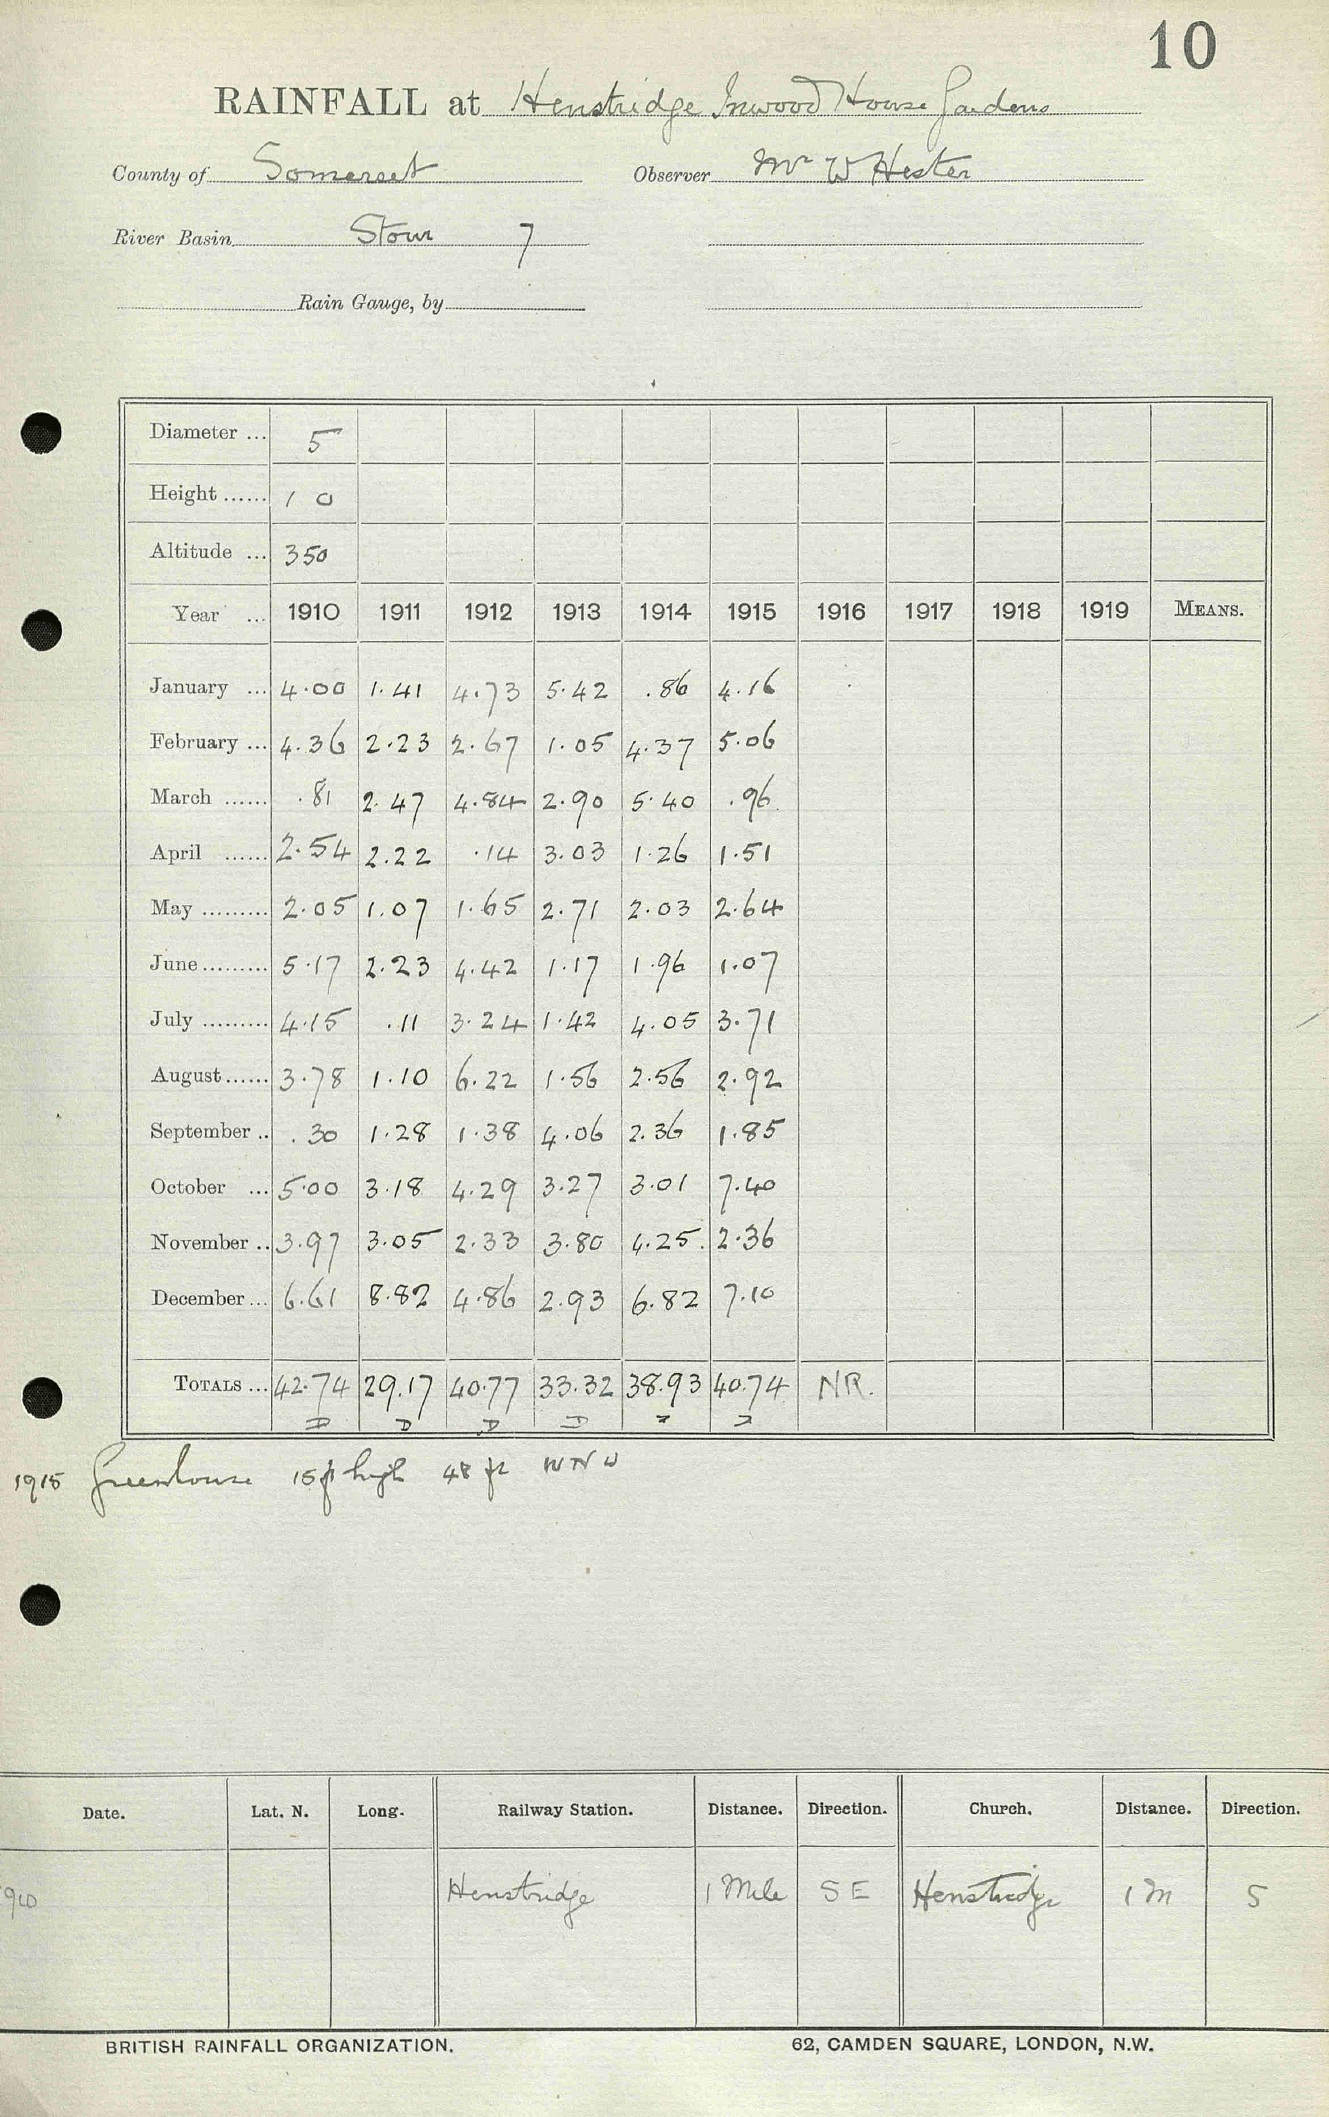 10
RAINFALL at Henstridge Inwood House Gardens
County of Somerset Observer Mr W Hester
River Basin Stour 7
Rain Gauge, by
Diameter ... 5
Height ...... 1 0
Altitude ... 350
Year ... 1910 1911 1912 1913 1914 1915 1916 1917 1918 1919 MEANS.
January ... 4.00 1.41 4.73 5.42 .86 4.16
February ... 4.36 2.23 2.67 1.05 4.37 5.06
March ...... .81 2.47 4.84 2.90 5.40 .96
April ...... 2.54 2.22 .14 3.03 1.26 1.51
May ......... 2.05 1.07 1.65 2.71 2.03 2.64
June ......... 5.17 2.23 4.42 1.17 1.96 1.07
July ......... 4.15 .11 3.24 1.42 4.05 3.71
August ...... 3.78 1.10 6.22 1.56 2.56 2.92
September .. .30 1.28 1.38 4.06 2.36 1.85
October ... 5.00 3.18 4.29 3.27 3.01 7.40
November .. 3.97 3.05 2.33 3.80 4.25 2.36
December ... 6.61 8.82 4.86 2.93 6.82 7.10
TOTALS ... 42.74 29.17 40.77 33.32 38.93 40.74 NR.
1915 Greenhouse 15ft high 48 ft WNW
Date. Lat. N. Long. Railway Station. Distance. Direction. Church. Distance. Direction.
Henstridge 1 Mile SE Henstridge 1 m S
BRITISH RAINFALL ORGANIZATION. 62, CAMDEN SQUARE, LONDON, N.W.